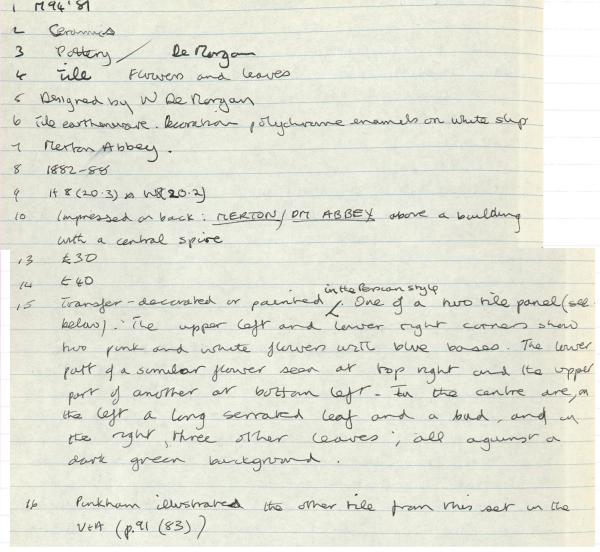 1 M94'81
2 Ceramics
3 Pottery / De Morgan
4 Tile Flowers and leaves
5 Designed by W De Morgan
6 Tile earthenware. Decoration polychrome enamels on white slip
7 Merton Abbey.
8 1882-88
9 H 8 (20.3) x W8(20.2)
10 Impressed on back: MERTON/DM ABBEY above a building
with a central spire
13 £30
14 £40
in the Persian style
15 Transfer-decorated or painted . One of a two tile panel (see
below). The upper left and lower right corners show
two pink and white flowers with blue bases. The lower
part of a similar flower seen at top right and the upper
part of another at bottom left. In the centre are, on
the left a long serrated leaf and a bud, and on
the right, three other leaves; all against a
dark green background.
16 Pinkham illustrated the other tile from this set in the
V&A (p.91 (83))